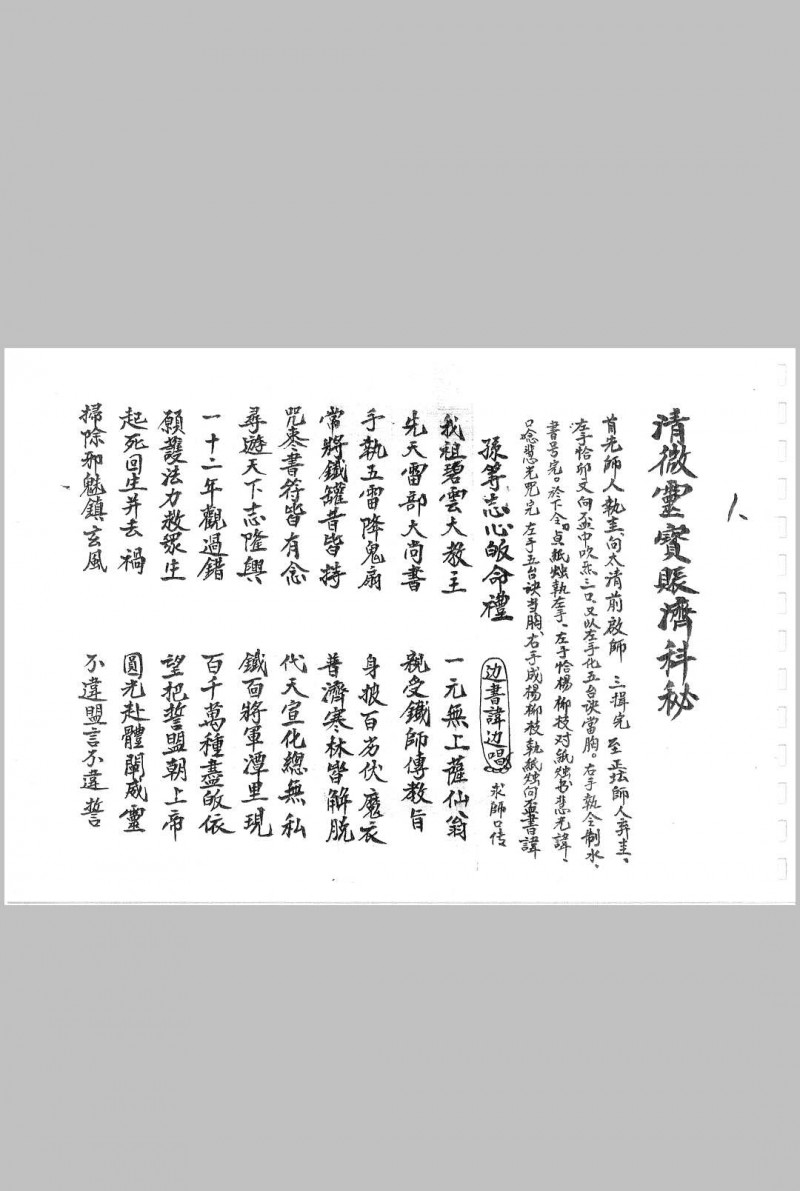 人
清微靈寶賑濟科秘
首先師人執圭向太清前啟師 三揖完 至正坛師人弃圭、
左手恰卯文向盂中吹炁三口又以左手化五台訣當胸。右手執令制水、
書号完。於下令。点紙燭執左手、左手恰楊柳枝对紙燭书悲光諱、
口念悲光咒完 左手五台訣当胸、右手成楊柳枝執紙燭向盂書諱
孫等志心皈命禮 边書諱边唱 求師口传
我祖碧雲大教主 一元無上薩仙翁
先天雷部大尚書 親受鐵師傳教旨
手執五雷降鬼扇 身披百衲伏魔衣
常將鐵罐昔皆持 普濟寒林皆解脫
咒棗書符皆有念 代天宣化總無私
尋遊天下志隆興 鐵面將軍潭里現
一十二年觀過錯 百千萬種盡皈依
願護法力救衆生 望把誓盟朝上帝
起死回生并去禍 圓光赴體闡威靈
掃除邪魅鎮玄風 不違盟言不違誓